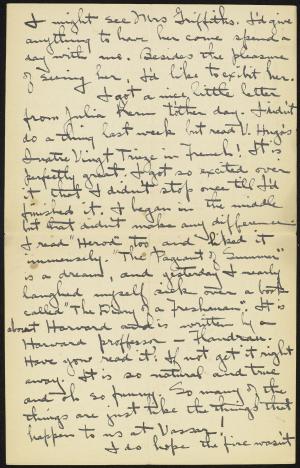 I might see Mrs Griffiths. I'd give
anything to have her come spend a
day with me. Besides the pleasure
of seeing her, I'd like to exhibit her.
I got a nice little letter
from Julia t'other day. I didn't
do a thing last week but read V. Hugo's
Quatre Vingt Treize in French! It is
perfectly great. I got so excited over
it that I didn't stop once till I'd
finished it. I began in the middle
but that didn't make any difference.
I read "Herod" too and liked it
immensely. "The Pageant of Summer"
is a dream, and yesterday I nearly
laughed myself sick over a book
called "The Diary of a Freshman". It is
about Harvard and is written by a
Harvard professor — Flandrau.
Have you read it? If not get it right
away. It is so natural and true
and oh so funny. So many of the
things are just like the things that
happen to us at Vassar!
I do hope the fire wasn't